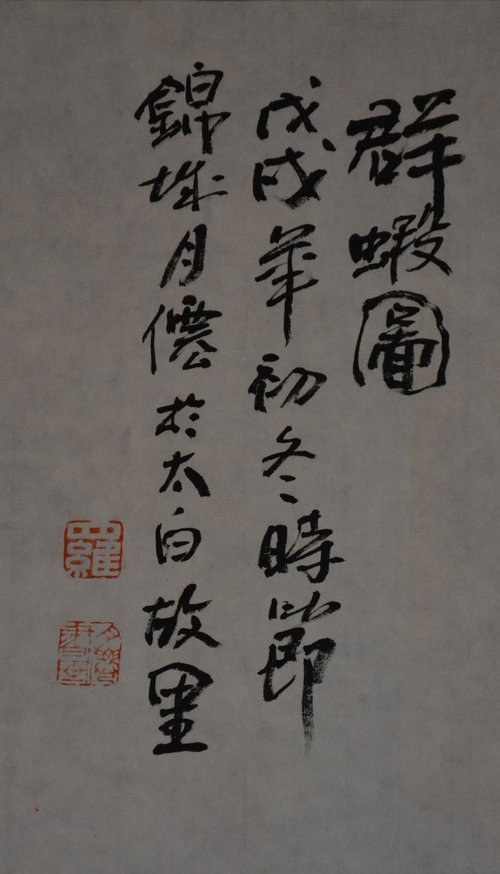 群蝦圖
戊戌年初冬時節
錦城月僊於太白故里
羅